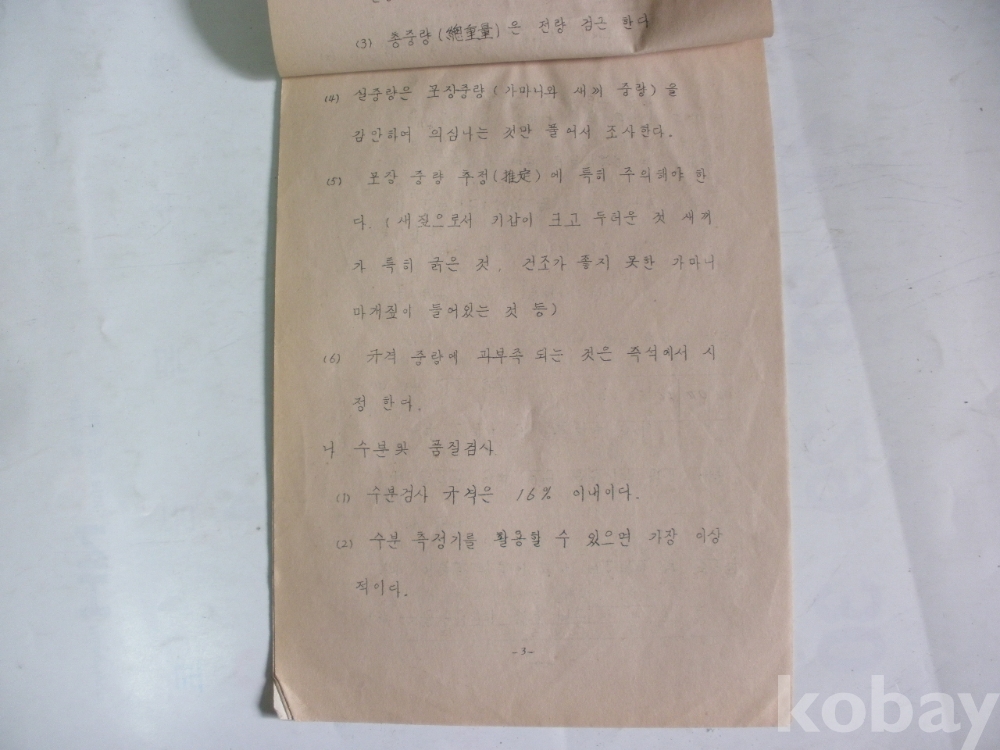 (3) 총중량(總重量)은 전량 검근 한다
(4) 실중량은 포장중량(가마니와 새끼 중량)을
감안하여 의심나는 것만 풀어서 조사한다.
(5) 포장 중량 추정(推定)에 특히 주의해야 한
다. (새짚으로서 기갑이 크고 두러운 것 새끼
가 특히 굵은 것. 건조가 좋지 못한 가마니
마개짚이 들어있는 것 등)
(6) 규격 중량에 과부족 되는 것은 즉석에서 시
정 한다.
나 수분 및 품질검사
(1) 수분검사 규격은 16% 이내이다.
(2) 수분 측정기를 활용할 수 있으면 가장 이상
적이다.
-3-
kobay